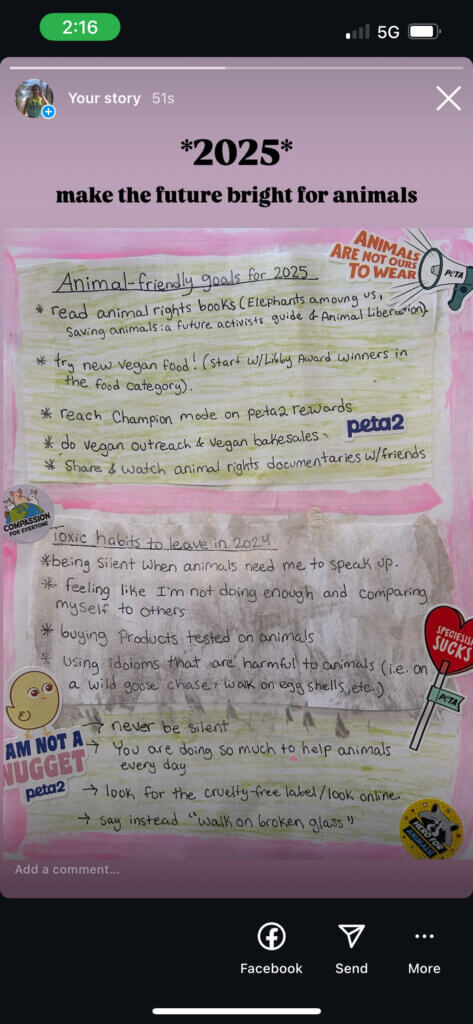 2:16
5G
Your story 51s
*2025*
make the future bright for animals
ANIMALS
ARE NOT OURS
TO WEAR
PETA
Animal-friendly goals for 2025
* read animal rights books (Elephants amoung us,
Saving animals: a future activists guide & Animal Liberation).
* try new vegan food! (start w/Libby Award winners in
the food category).
* reach Champion mode on peta2 rewards
peta2
* do vegan outreach & vegan bakesales
* Share & watch animal rights documentaries w/friends
COMPASSION
FOR EVERYONE
Toxic habits to leave in 2024
* being silent when animals need me to speak up.
* feeling like I'm not doing enough and comparing
myself to others
* buying Products tested on animals
* using idoioms that are harmful to animals (i.e. on
a wild goose chase, walk on egg shells, etc.)
SPECIESISM
SUCKS
PETA
→ never be silent
AM NOT A
NUGGET
peta2
→ You are doing so much to help animals
every day
→ look for the cruelty-free label/look online
→ say instead "walk on broken glass")
HERO FOR
ANIMALS
Add a comment...
Facebook Send More